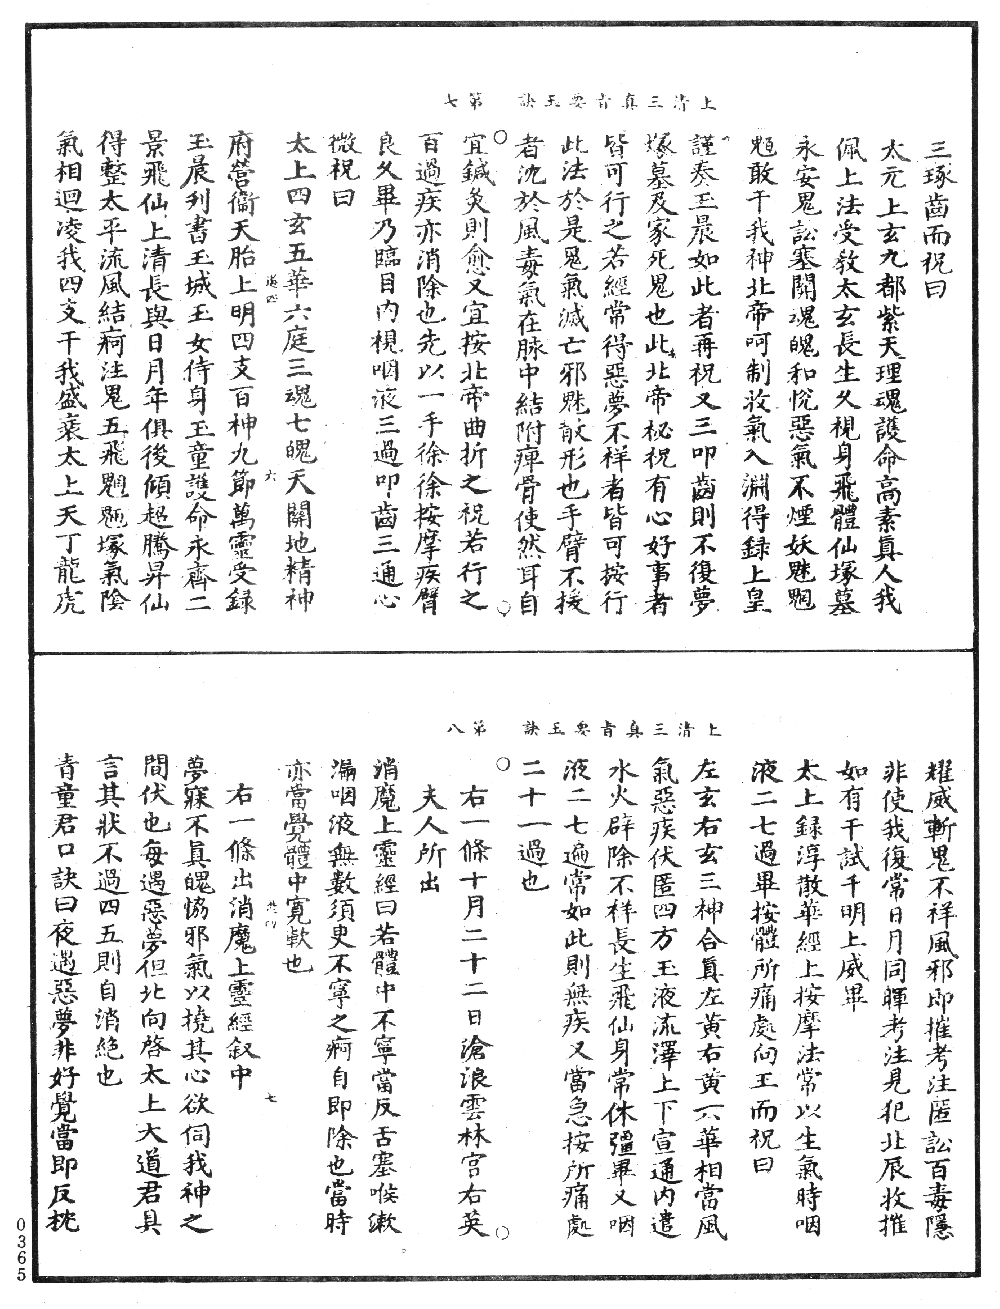 上清三真旨要玉訣　第七
三琢齒而祝曰
太元上玄九都紫天理魂護命高素真人我
佩上法受敎太玄長生久視身飛體仙塚墓
永安鬼訟塞閉魂魄和悅惡氣不煙妖魅魍
魎敢干我神北帝呵制收氣入淵得録上皇
謹奏玉晨如此者再祝又三叩齒則不復夢
塚墓及家死鬼也此北帝祕祝有心好事者
皆可行之若經常得惡夢不祥者皆可按行
此法於是鬼氣滅亡邪魅散形也手臂不援
者沈於風毒氣在脉中結附痺骨使然耳自
宜鍼灸則愈又宜按北帝曲折之祝若行之
百過疾亦消除也先以一手徐徐按摩疾臂
良久畢乃臨目內視咽液三過叩齒三通心
微祝曰
太上四玄五華六庭三魂七魄天關地精神
府營衞天胎上明四支百神九節萬靈受録
玉晨刋書玉城玉女侍身玉童護命永齊二
景飛仙上清長與日月年俱後傾超騰昇仙
得整太平流風結痾注鬼五飛魍魎塚氣陰
氣相迴凌我四支干我盛衰太上天丁龍虎
六
上清三真旨要玉訣　第八
耀威斬鬼不祥風邪即摧考注匿訟百毒隱
非使我復常日月同暉考注見犯北辰收摧
如有干試干明上威畢
太上録淳散華經上按摩法常以生氣時咽
液二七過畢按體所痛處向王而祝曰
左玄右玄三神合真左黄右黄六華相當風
氣惡疾伏匿四方玉液流澤上下宣通內遣
水火辟除不祥長生飛仙身常休彊畢又咽
液二七遍常如此則無疾又當急按所痛處
二十一過也
右一條十月二十二日滄浪雲林宮右英
夫人所出
消魔上靈經曰若體中不寧當反舌塞喉漱
漏咽液無數須吏不寧之痾自即除也當時
亦當覺體中寬軟也
右一條出消魔上靈經叙中
夢寐不真魄協邪氣以撓其心欲伺我神之
間伏也每遇惡夢但北向啓太上大道君具
言其狀不過四五則自消絶也
青童君口訣曰夜遇惡夢非好覺當即反枕
七
0365